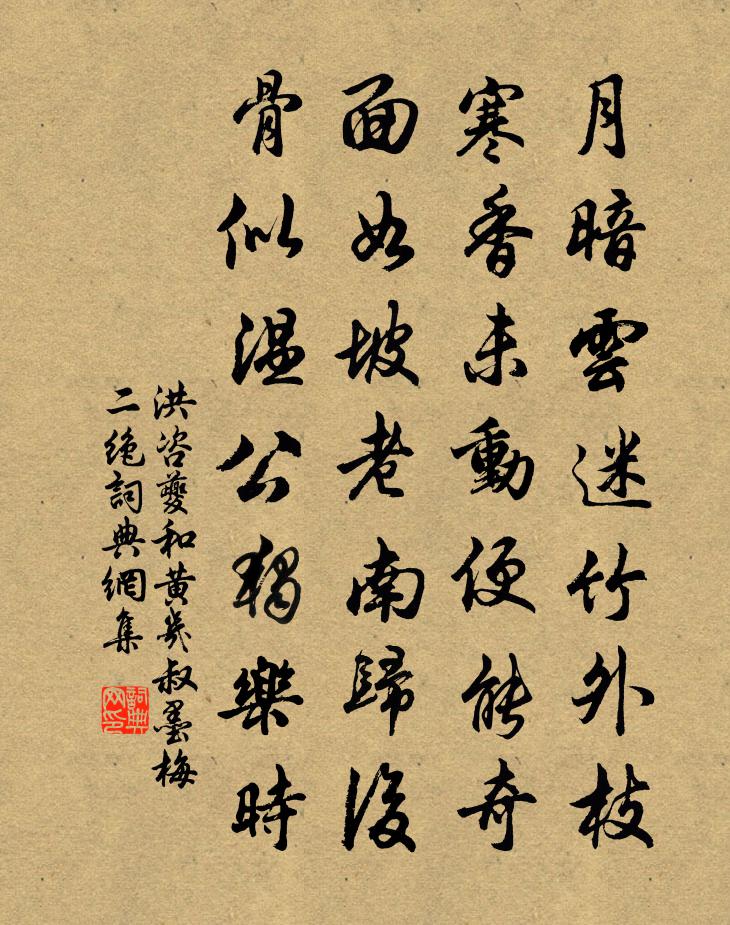 月暗雲迷竹外枝
寒香未動便能奇
面如坡老南歸後
骨似溫公獨樂時
洪咨夔和黃幾叔墨梅
二絕詞典網集
詞典
网印